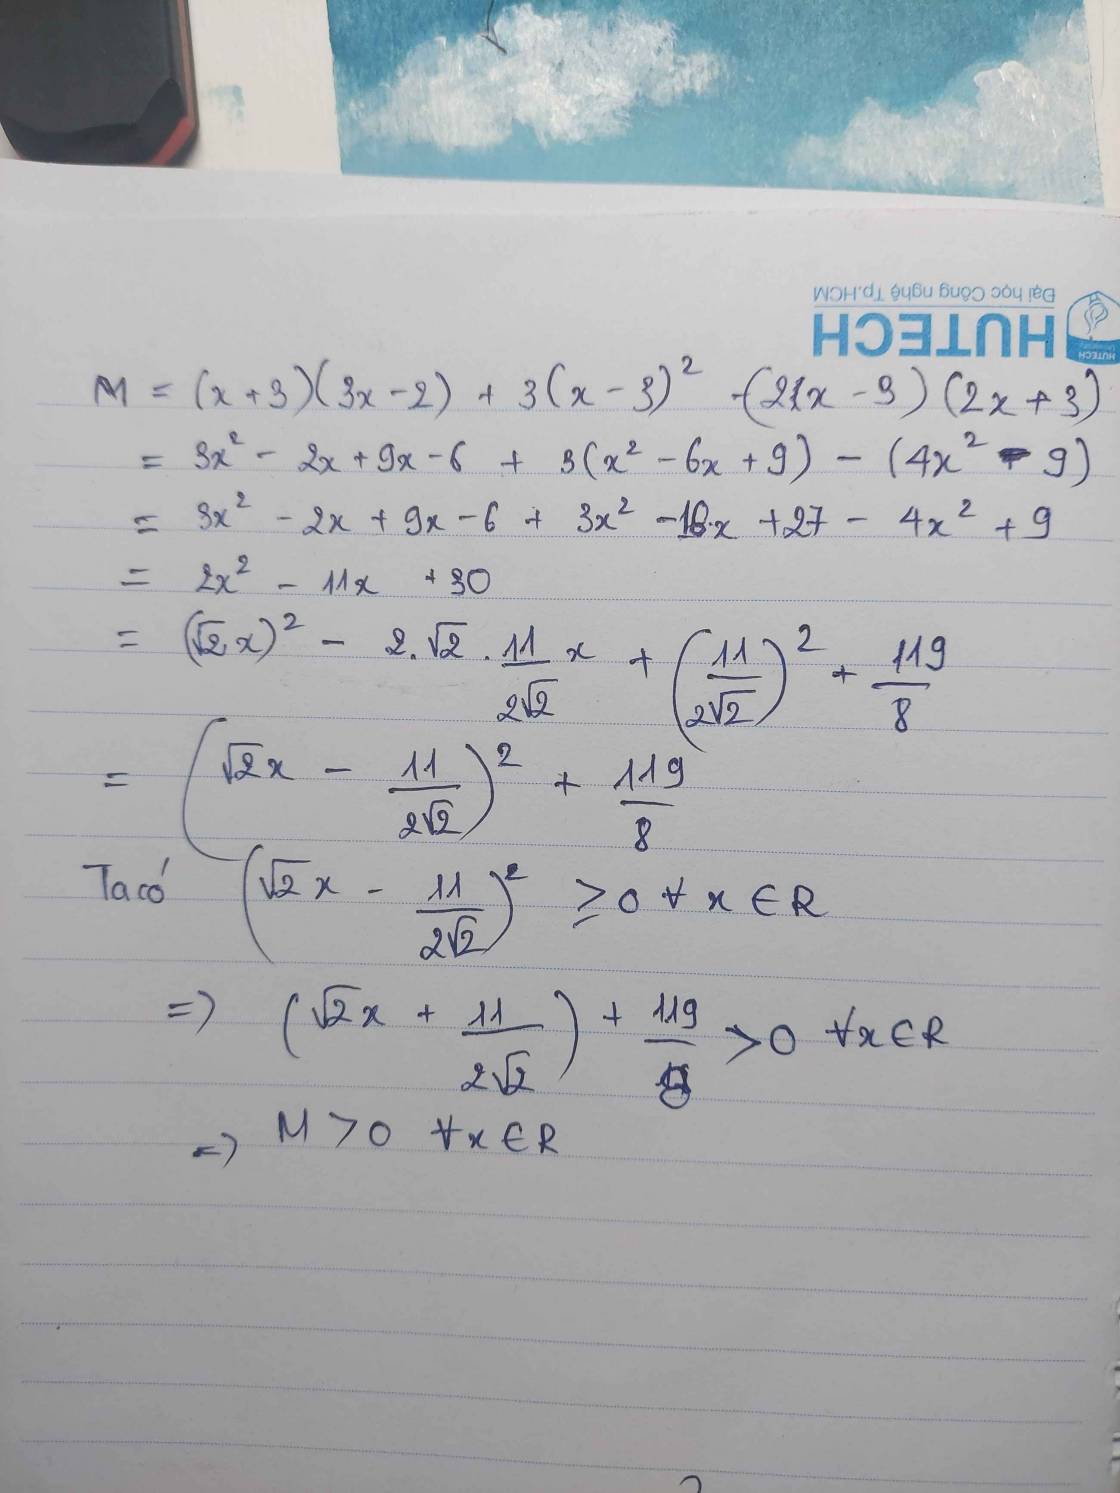 Đại học Công nghệ Tp.HCM
HUTECH
HUTECH
University
M = (x + 3)(3x - 2) + 3(x - 3)² - (2x - 3)(2x + 3)
= 3x² - 2x + 9x - 6 + 3(x² - 6x + 9) - (4x² - 9)
= 3x² - 2x + 9x - 6 + 3x² - 18x + 27 - 4x² + 9
= 2x² - 11x + 30
= (√2x)² - 2.√2 . 11/2√2 x + (11/2√2)² + 119/8
= (√2x - 11/2√2)² + 119/8
Ta có (√2x - 11/2√2)² ≥ 0 ∀ x ∈ R
=> (√2x + 11/2√2) + 119/8 > 0 ∀x ∈ R
=> M > 0 ∀x ∈ R